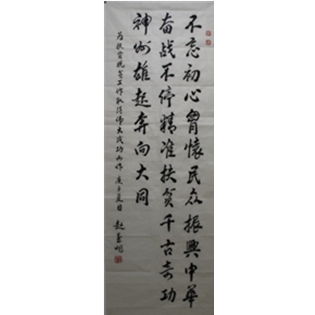 不忘初心胷懷民众振興中华
奋战不停精准扶贫千古奇功
神州雄起奔向大同
为扶贫脱贫工作取得伟大成功而作 庚子夏日